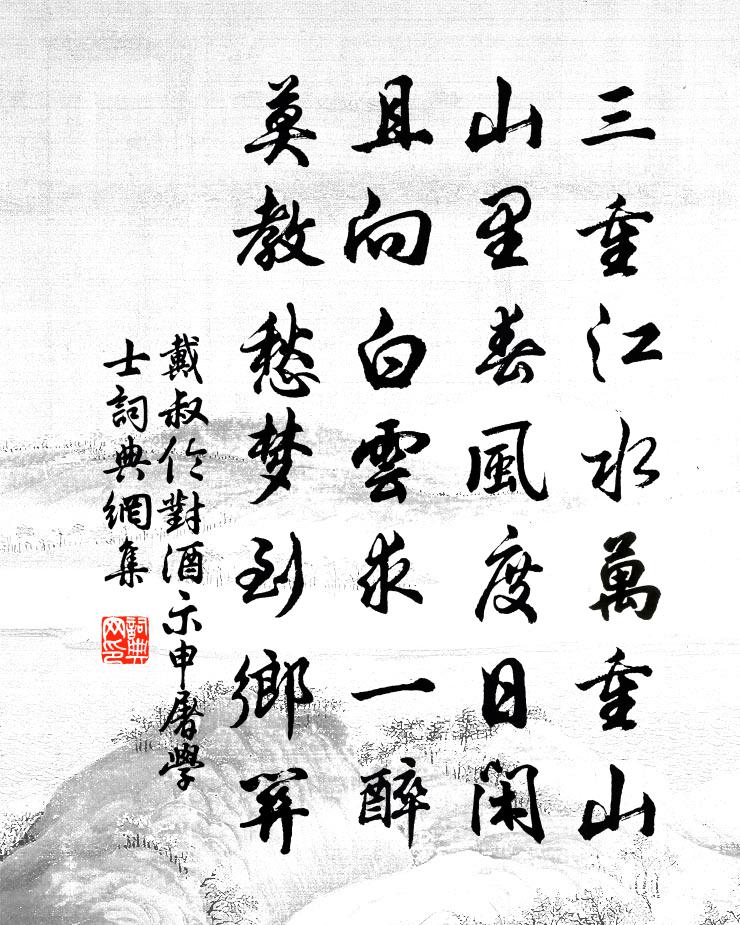 三重江水萬重山
山里春風度日閑
且向白雲求一醉
莫教愁梦到鄉關
戴叔伦對酒示申屠學
士詞典網集
詞典网印